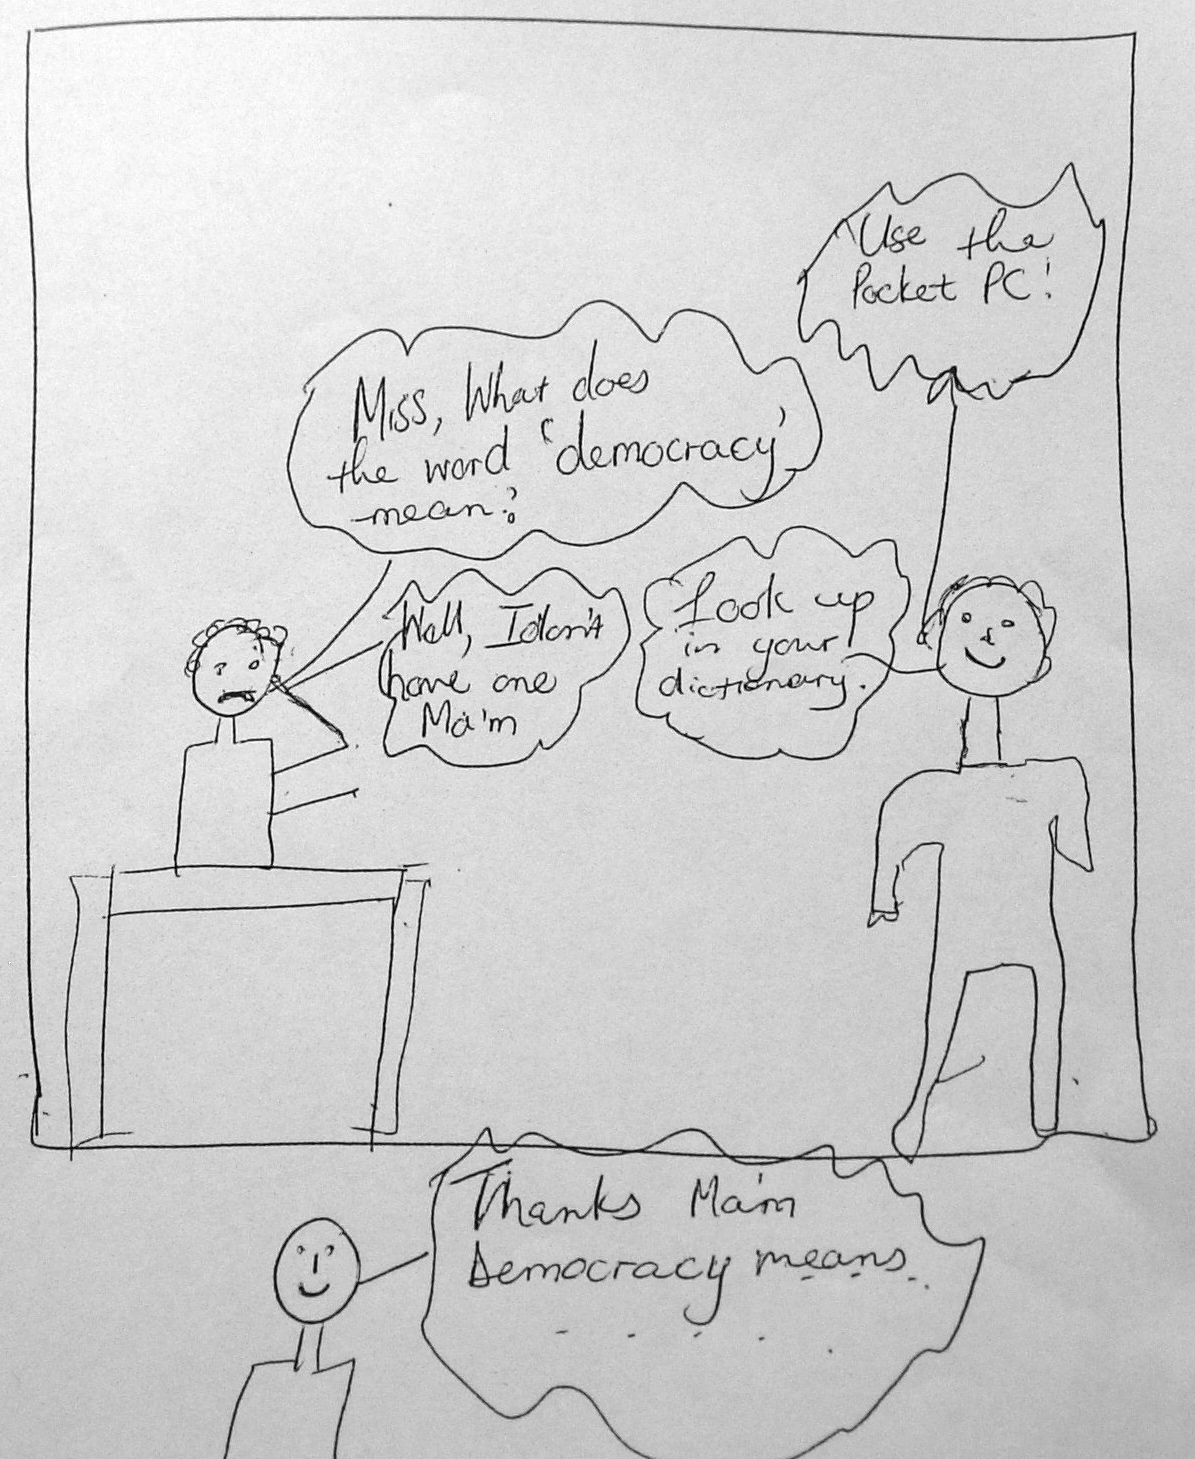 Miss, What does
the word 'democracy'
mean?
Look up
in your
dictionary.
Well, I don't
have one
Ma'm
Use the
Pocket PC!
Thanks Ma'm
Democracy means..
- . . . .